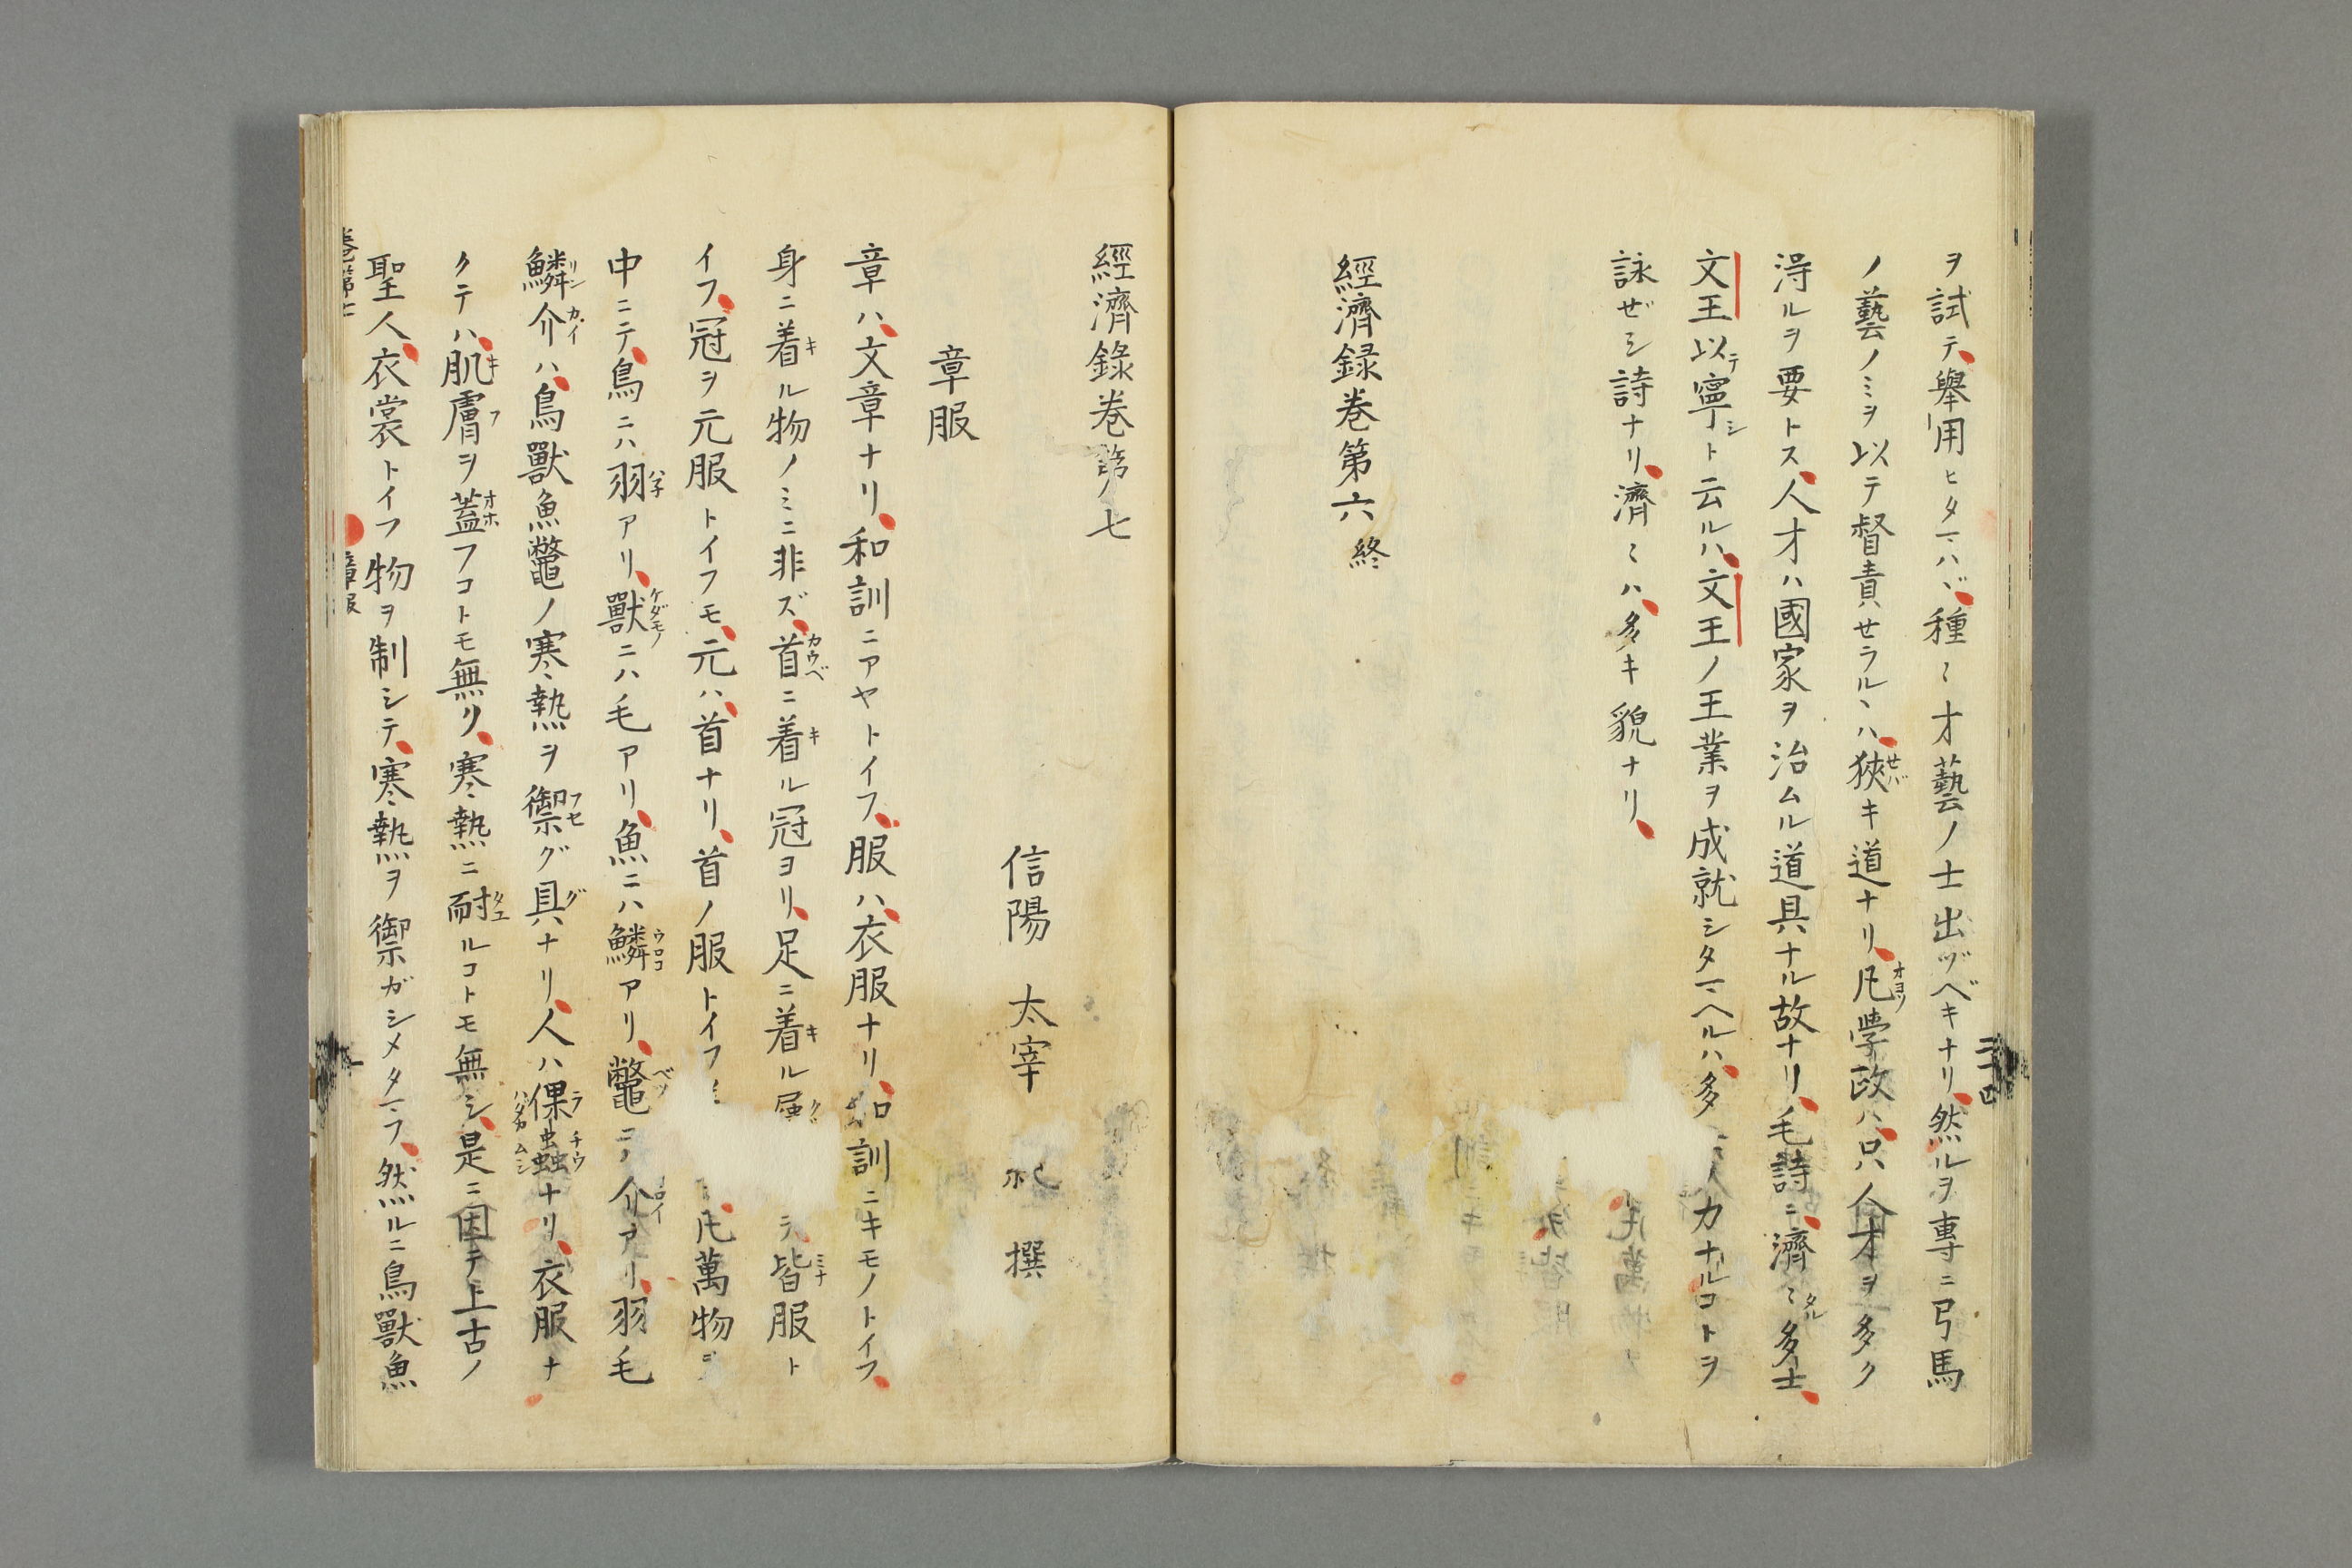 ヲ試テ、舉用ヒタマハヾ、種〻才藝ノ士出ヅベキナリ、然ルヲ專ニ弓馬
ノ藝ノミヲ以テ督責セラルヽハ、狹キ道ナリ、凡学政ハ、只人才ヲ多ク
淂ルヲ要トス、人才ハ國家ヲ治ムル道具ナル故ナリ、毛詩ニ、濟〻多士、
文王以寧ト云ルハ、文王ノ王業ヲ成就シタマヘルハ、多 人力ナルコトヲ
詠ゼシ詩ナリ、濟〻ハ、多キ貌ナリ、
經濟録巻第六 終
二十四
經濟錄巻第七
信陽 太宰 撰
章服
章ハ、文章ナリ、和訓ニアヤトイフ、服ハ、衣服ナリ、和訓ニキモノトイフ、
身ニ着ル物ノミニ非ズ、首ニ着ル冠ヨリ、足ニ着ル 皆服ト
イフ、冠ヲ元服トイフモ、元ハ、首ナリ、首ノ服トイフ 凡萬物
中ニテ、鳥ニハ羽アリ、獸ニハ毛アリ、魚ニハ鱗アリ、鼈ニハ介アリ、羽毛
鱗介ハ、鳥獸魚鼈ノ寒熱ヲ禦グ具ナリ、人ハ倮蟲ナリ、衣服ナ
クテハ、肌膚ヲ蓋フコトモ無リ、寒熱ニ耐ルコトモ無シ、是ニ因テ上古ノ
聖人、衣裳トイフ物ヲ制シテ、寒熱ヲ禦ガシメタマフ、然ルニ鳥獸魚
巻第七
章服